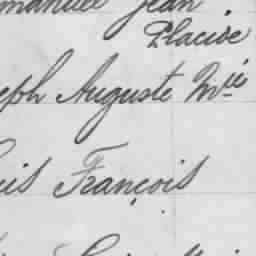 manuel Jean
Placide
eph Auguste
uis François